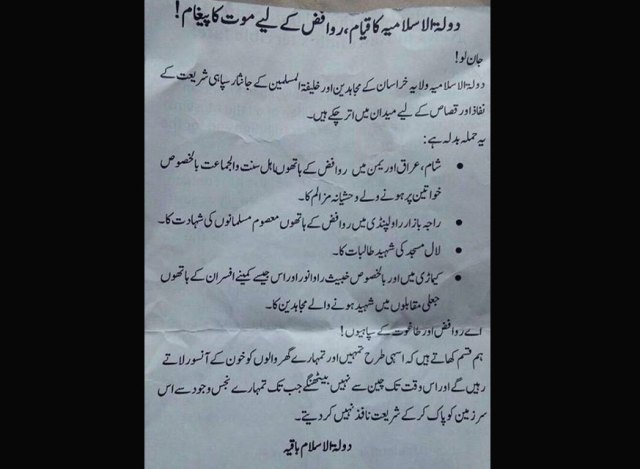 دولۃ الاسلامیہ کا قیام، روافض کے لیے موت کا پیغام!
جان لو!
دولۃ الاسلامیہ ولایہ خراسان کے مجاہدین اور خلیفۃ المسلمین کے جانثار سپاہی شریعت کے
نفاذ اور قصاص کے لیے میدان میں اتر چکے ہیں۔
یہ حملہ بدلہ ہے:
• شام، عراق اور یمن میں روافض کے ہاتھوں اہل سنت والجماعت بالخصوص
خواتین پر ہونے والے وحشیانہ مزالم کا۔
• راجہ بازار راولپنڈی میں روافض کے ہاتھوں معصوم مسلمانوں کی شہادت کا۔
• لال مسجد کی شہید طالبات کا۔
• کیماڑی میں اور بالخصوص خبیث راو انور اور اس جیسے کمینے افسران کے ہاتھوں
جعلی مقابلوں میں شہید ہونے والے مجاہدین کا۔
اے روافض اور طاغوت کے سپاہیوں!
ہم قسم کھاتے ہیں کہ اسہی طرح تمہیں اور تمہارے گھر والوں کو خون کے آنسو رلاتے
رہیں گے اور اس وقت تک چین سے نہیں بیٹھنگے جب تک تمہارے نجس وجود سے اس
سرزمین کو پاک کر کے شریعت نافذ نہیں کر دیتے۔
دولۃ الاسلام باقیہ